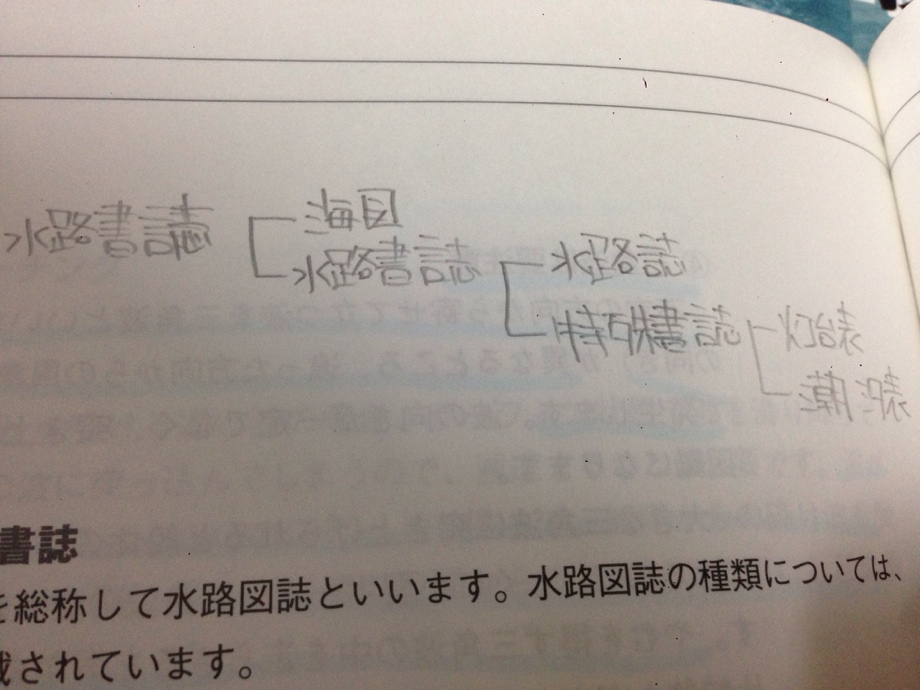 水路書誌 海図
水路書誌 水路誌
特殊書誌 灯台表
潮汐表
書誌
を総称して水路図誌といいます。水路図誌の種類については、
載されています。